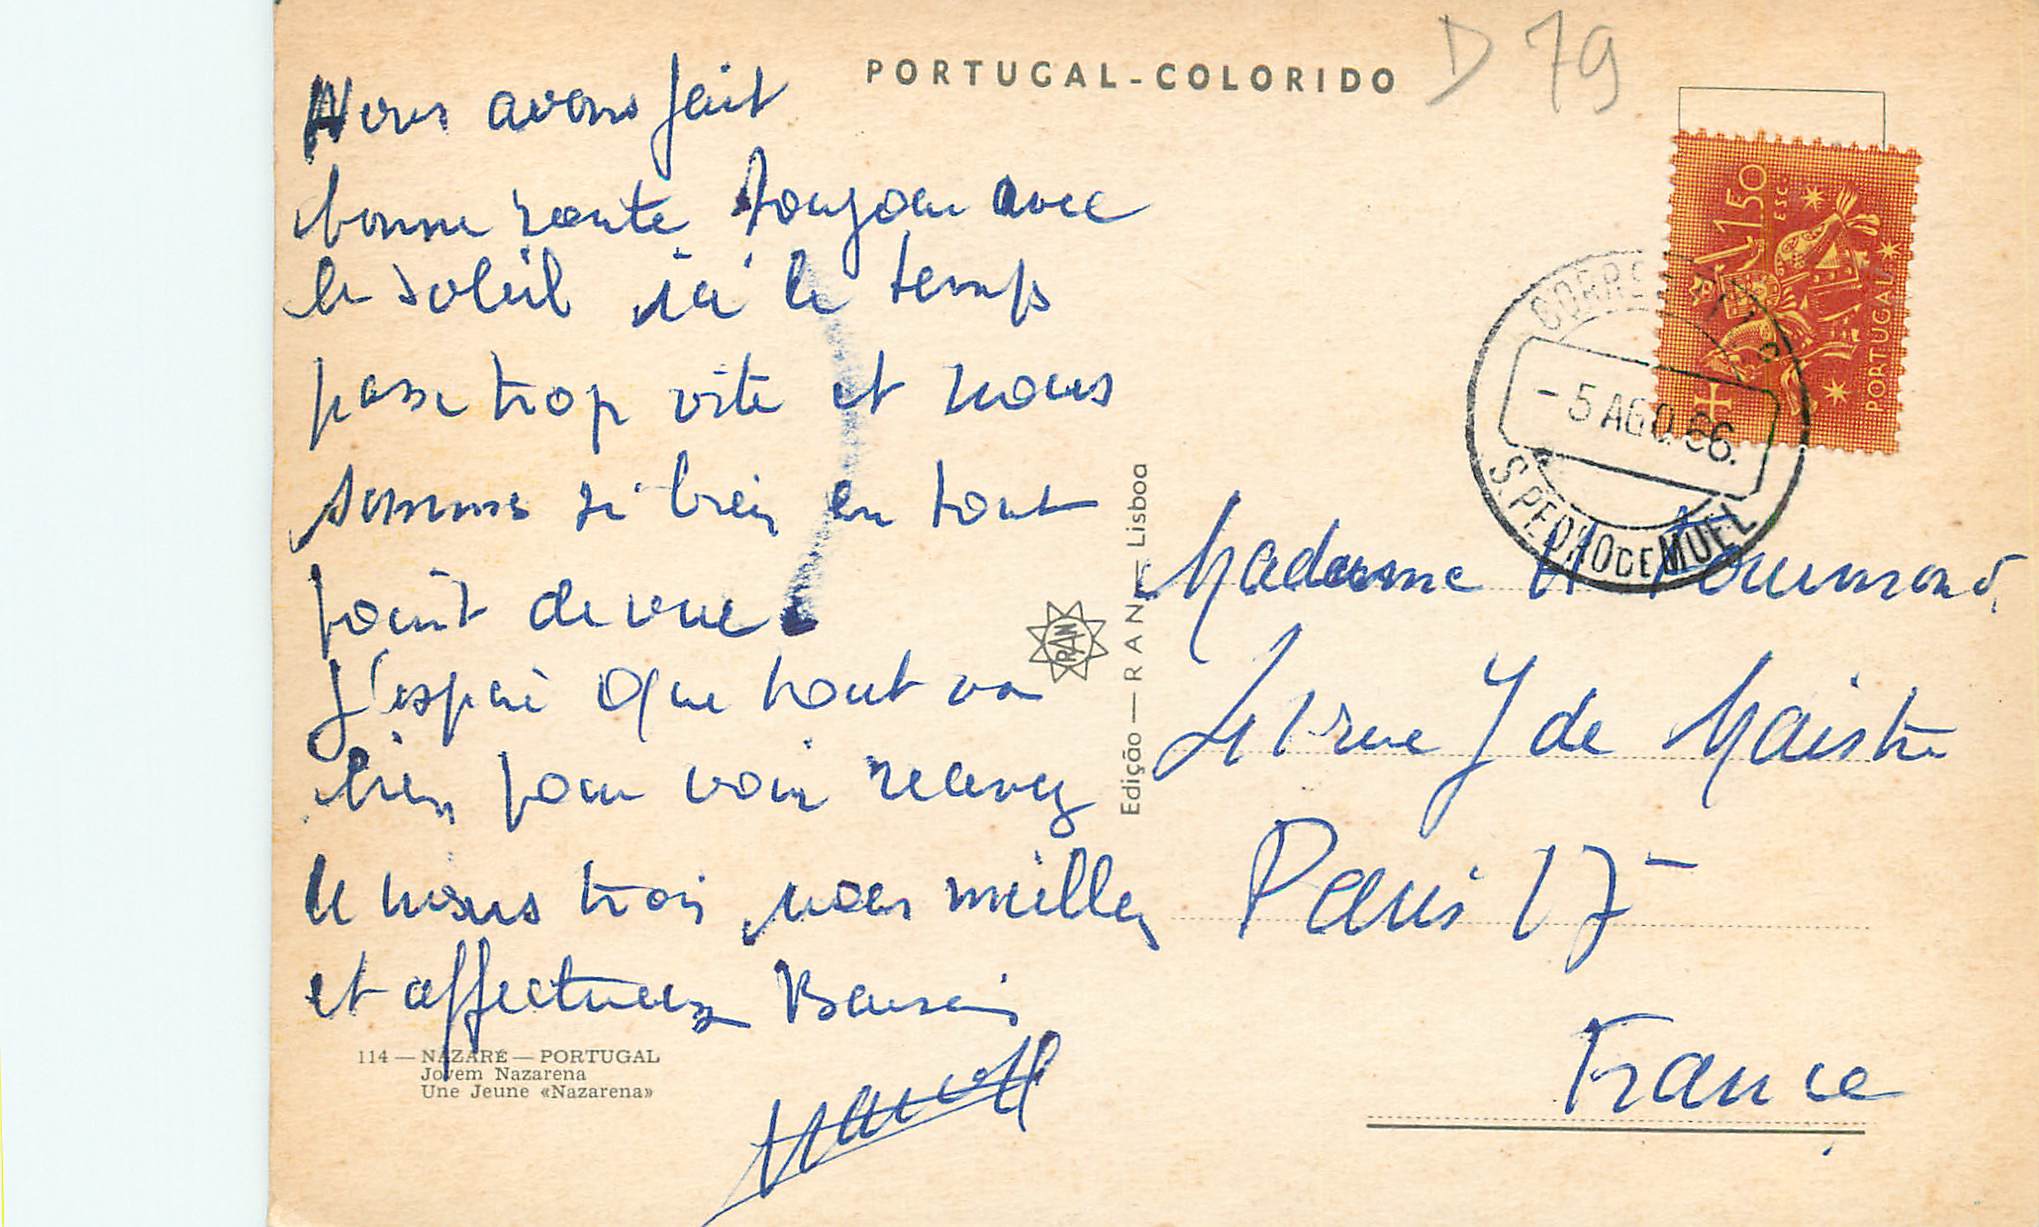 PORTUGAL-COLORIDO
D 79
Nous avons fait
bonne route toujours avec
le soleil ici le temps
passe trop vite et nous
sommes si bien en tout
point de vue.
J'espère que tout va
bien pour vous recevez
de nous trois nos meilleurs
et affectueux Baisers
114 — NAZARÉ — PORTUGAL
Jovem Nazarena
Une Jeune «Nazarena»
Edição — RAN — Lisboa
RAN
1$50
ESC.
PORTUGAL
CORREIOS
- 5 AGO. 66.
S. PEDRO DE MUEL
Madame
41 rue J de Maistre
Paris 17-
France